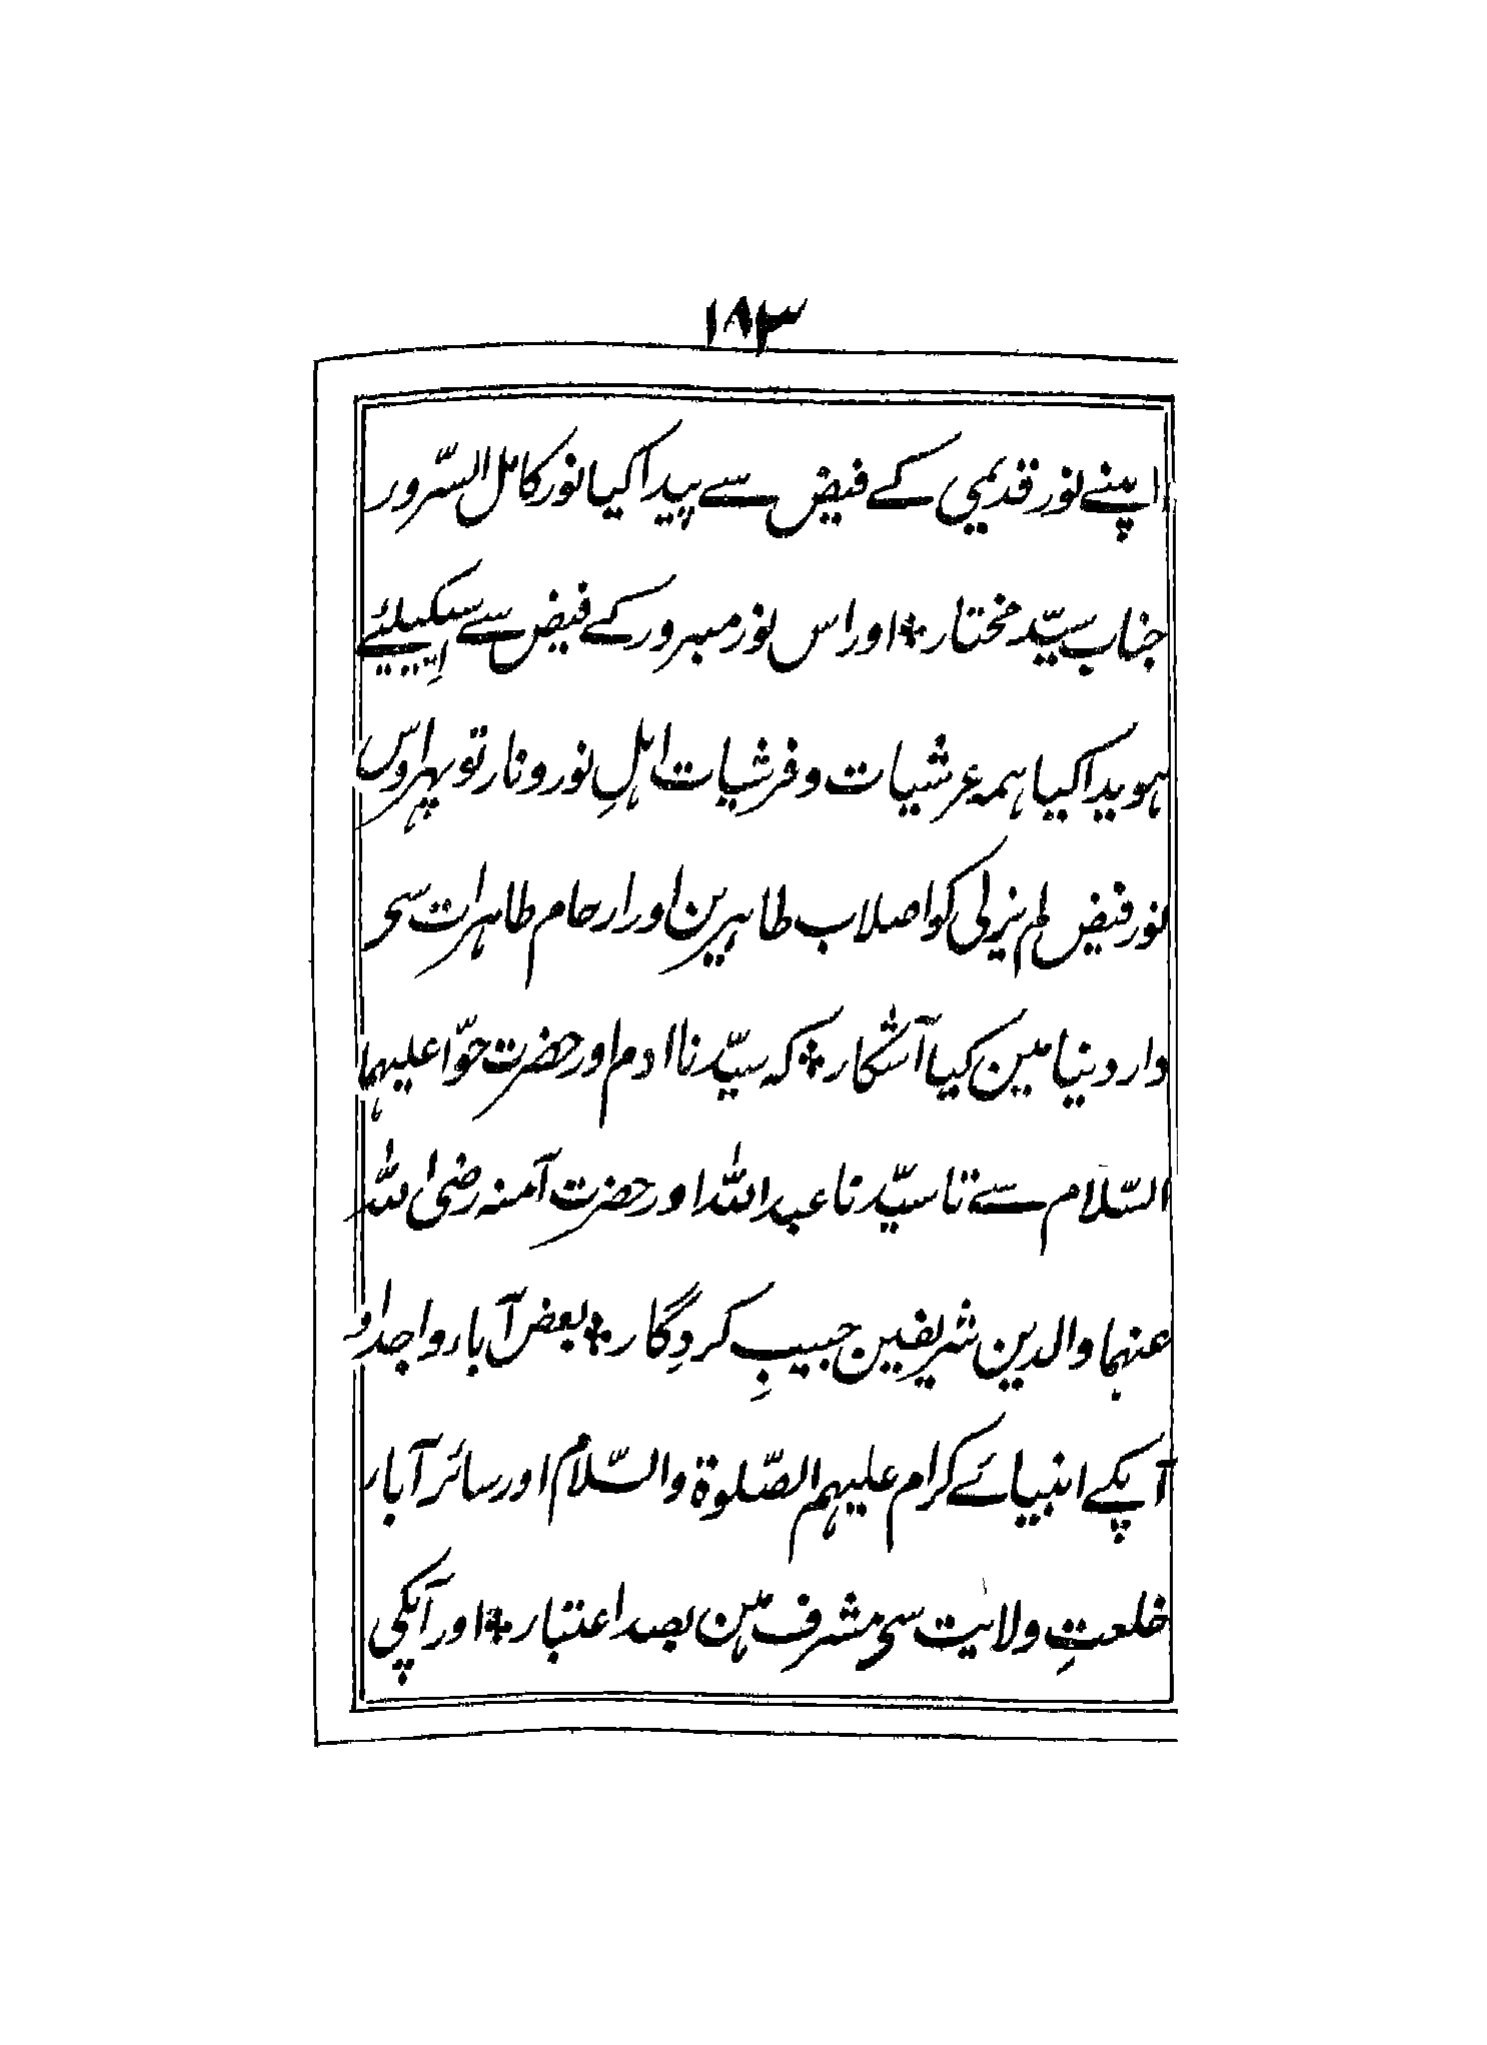 ۱۸۳
اپنے نور قدیمی کے فیض سے پیدا کیا نور کامل السّرور
جناب سیّد مختار ؞ اور اس نور مبرور کے فیض سے
ہویدا کیا ہمہ عرشیات و فرشیات اہلِ نور و نار تو پہر اوس
نور فیض لم یزلی کو اصلاب طاہرین اور ارحام طاہرات سی
دار دنیا مین کیا آشکار ؞ کہ سیّدنا ادم اور حضرت حوّا علیہما
السّلام سے تا سیّدنا عبد اللہ اور حضرت آمنہ رضی اللہ
عنہما والدین شریفین حبیبِ کردِگار ؞ بعض آباء و اجداد
آپکے انبیائے کرام علیہم الصّلوۃ والسّلام اور سائر آباء
خلعتِ ولایت سی مشرف ہین بصد اعتبار ؞ اور آپکی